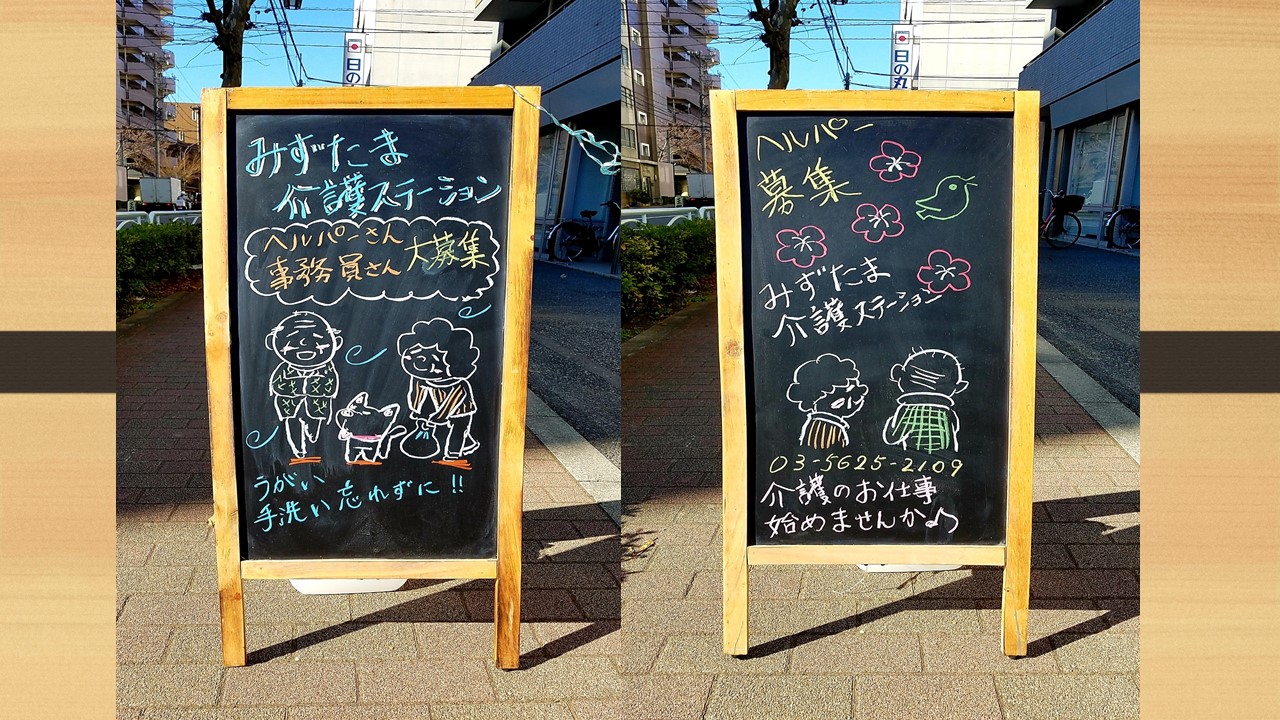 日の
みずたま
介護ステーション
ヘルパーさん
事務員さん
大募集
うがい
手洗い忘れずに!!
日の丸
ヘルパー
募集
みずたま
介護ステーション
03-5625-2109
介護のお仕事
始めませんか♪